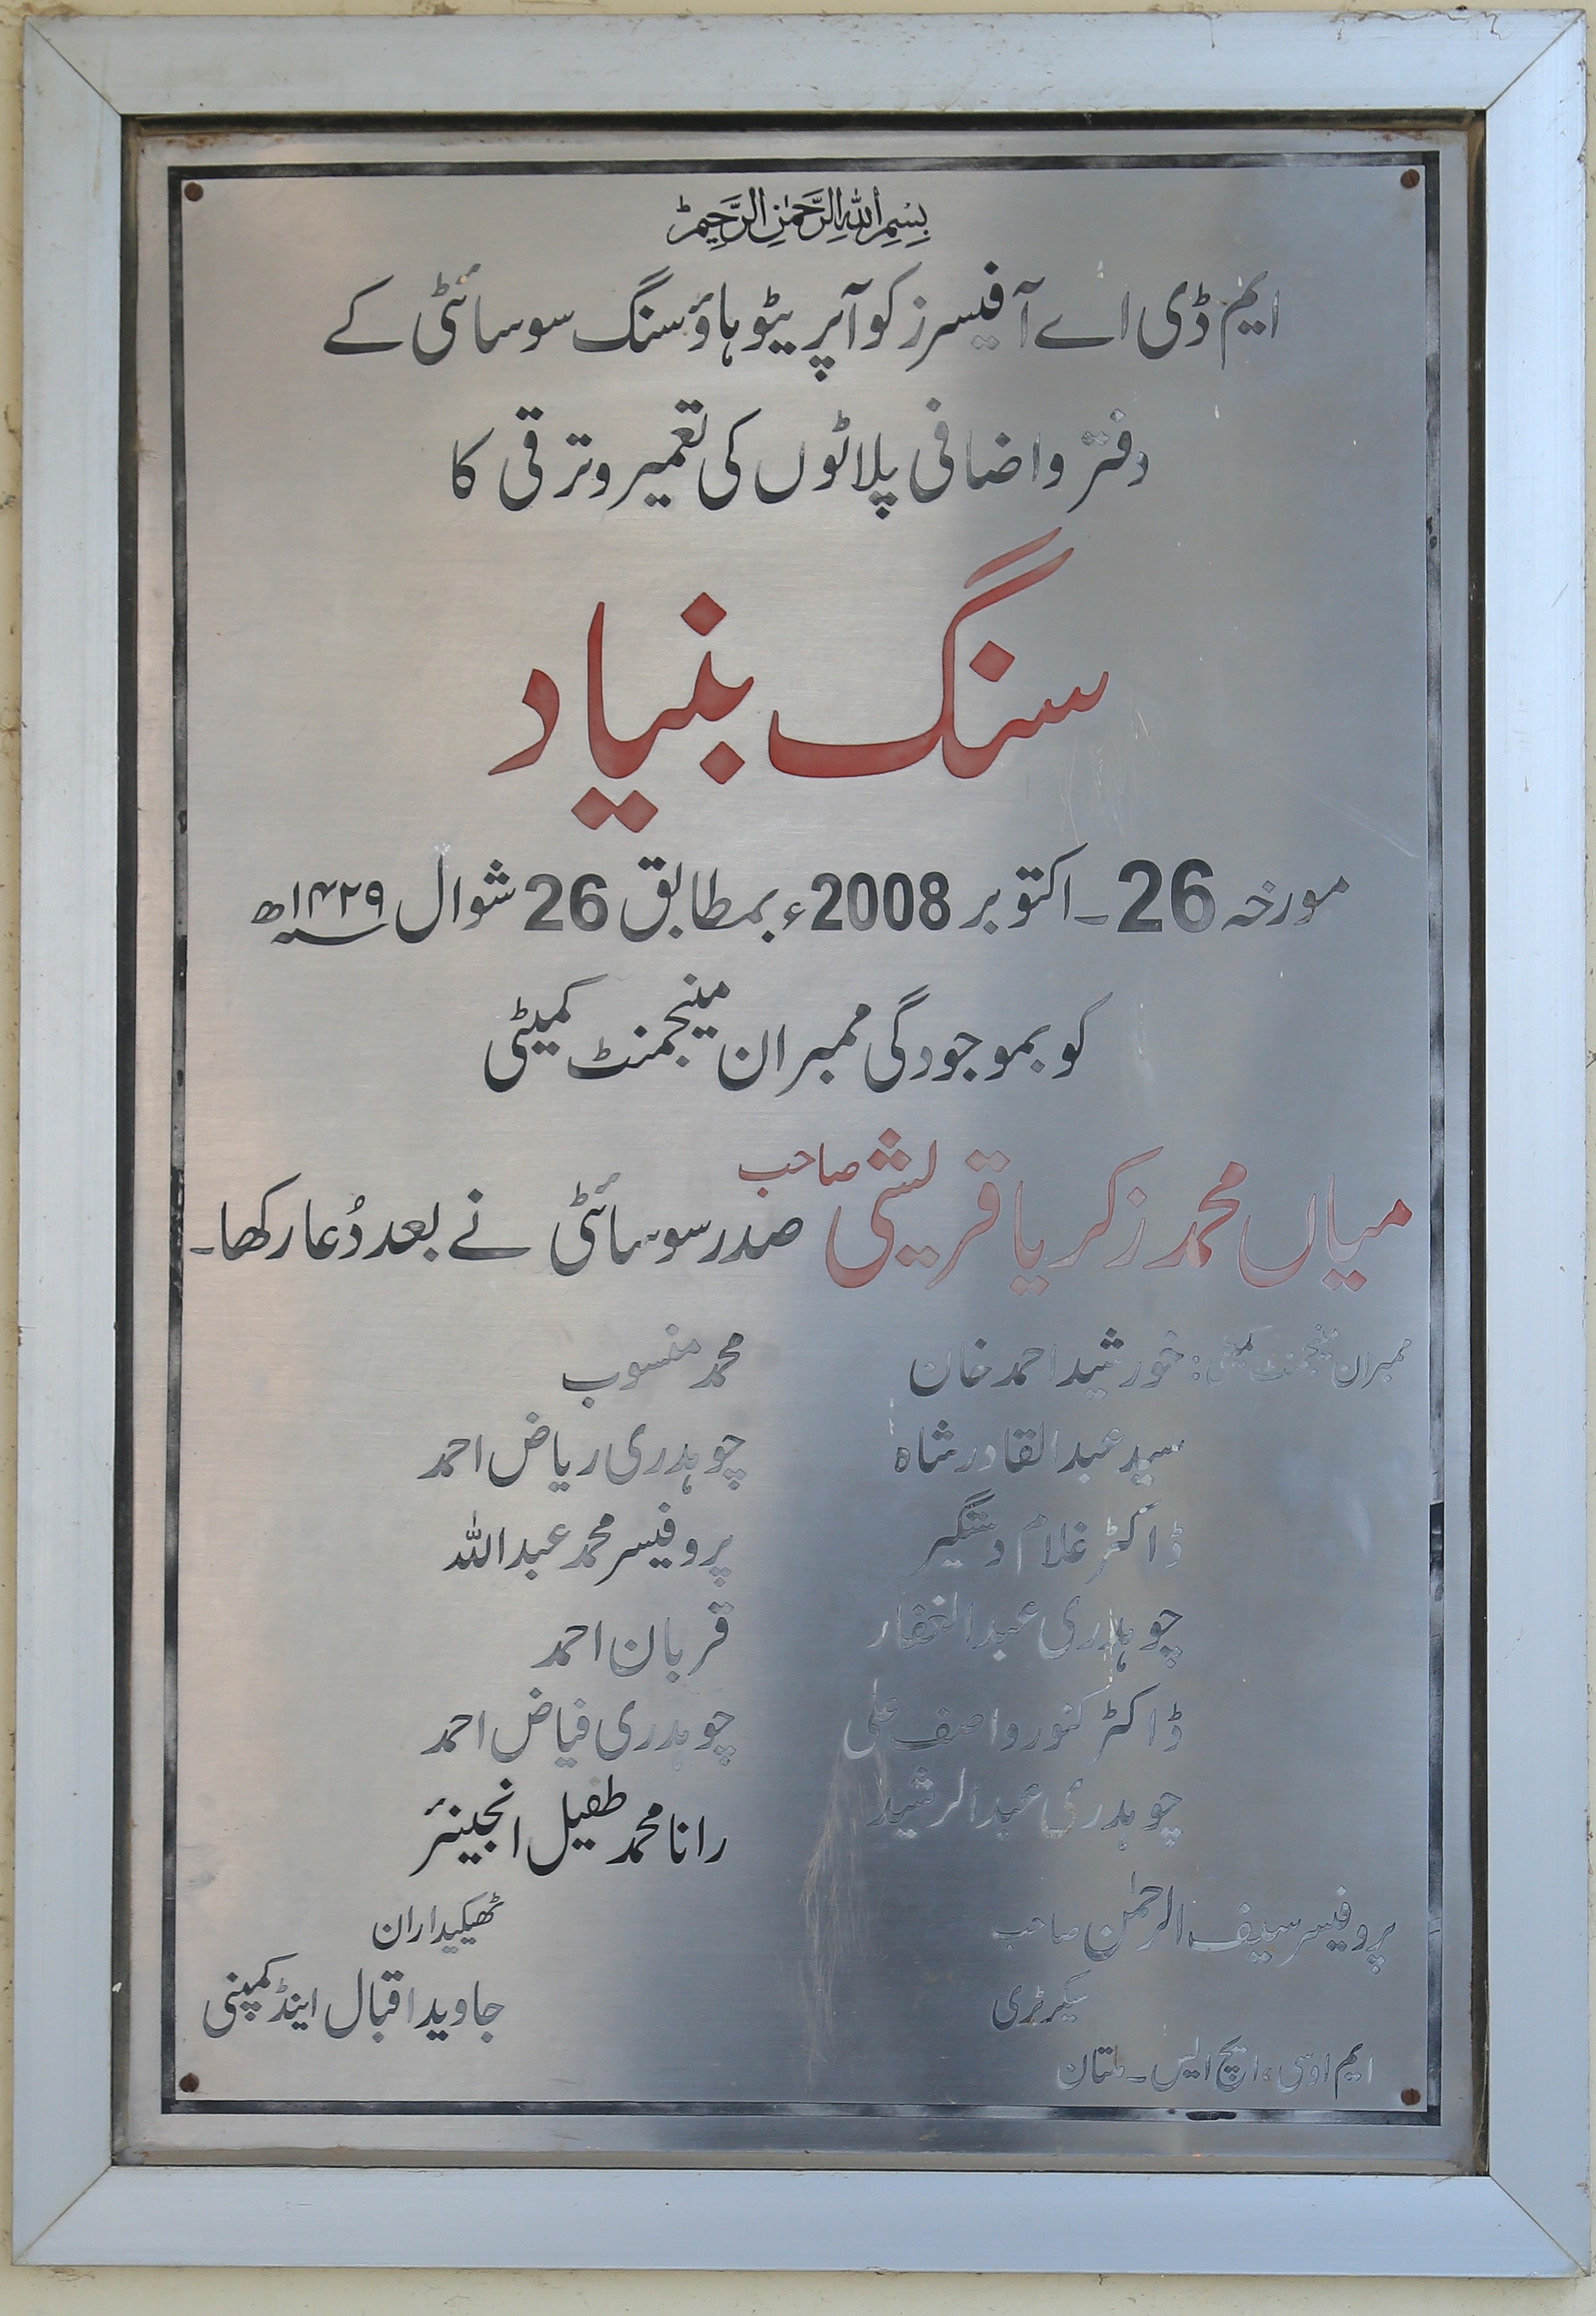 بِسْمِ اللہِ الرَّحْمٰنِ الرَّحِیْمِ ط
ایم ڈی اے آفیسرز کوآپریٹو ہاؤسنگ سوسائٹی کے
دفتر و اضافی پلاٹوں کی تعمیر و ترقی کا
سنگ بنیاد
مورخہ 26۔اکتوبر 2008ء بمطابق 26 شوال ۱۴۲۹ھ
کو بموجودگی ممبران مینجمنٹ کمیٹی
میاں محمد زکریا قریشی صاحب صدر سوسائٹی نے بعد دُعا رکھا۔
ممبران مینجمنٹ کمیٹی: خورشید احمد خان محمد منسوب
سید عبدالقادر شاہ چوہدری ریاض احمد
ڈاکٹر غلام دستگیر پروفیسر محمد عبداللہ
چوہدری عبدالغفار قربان احمد
ڈاکٹر کنور واصف علی چوہدری فیاض احمد
چوہدری عبدالرشید رانا محمد طفیل انجینئر
پروفیسر سیف الرحمٰن صاحب ٹھیکیداران
سیکرٹری جاوید اقبال اینڈ کمپنی
ایم او سی، ایچ ایس۔ ملتان